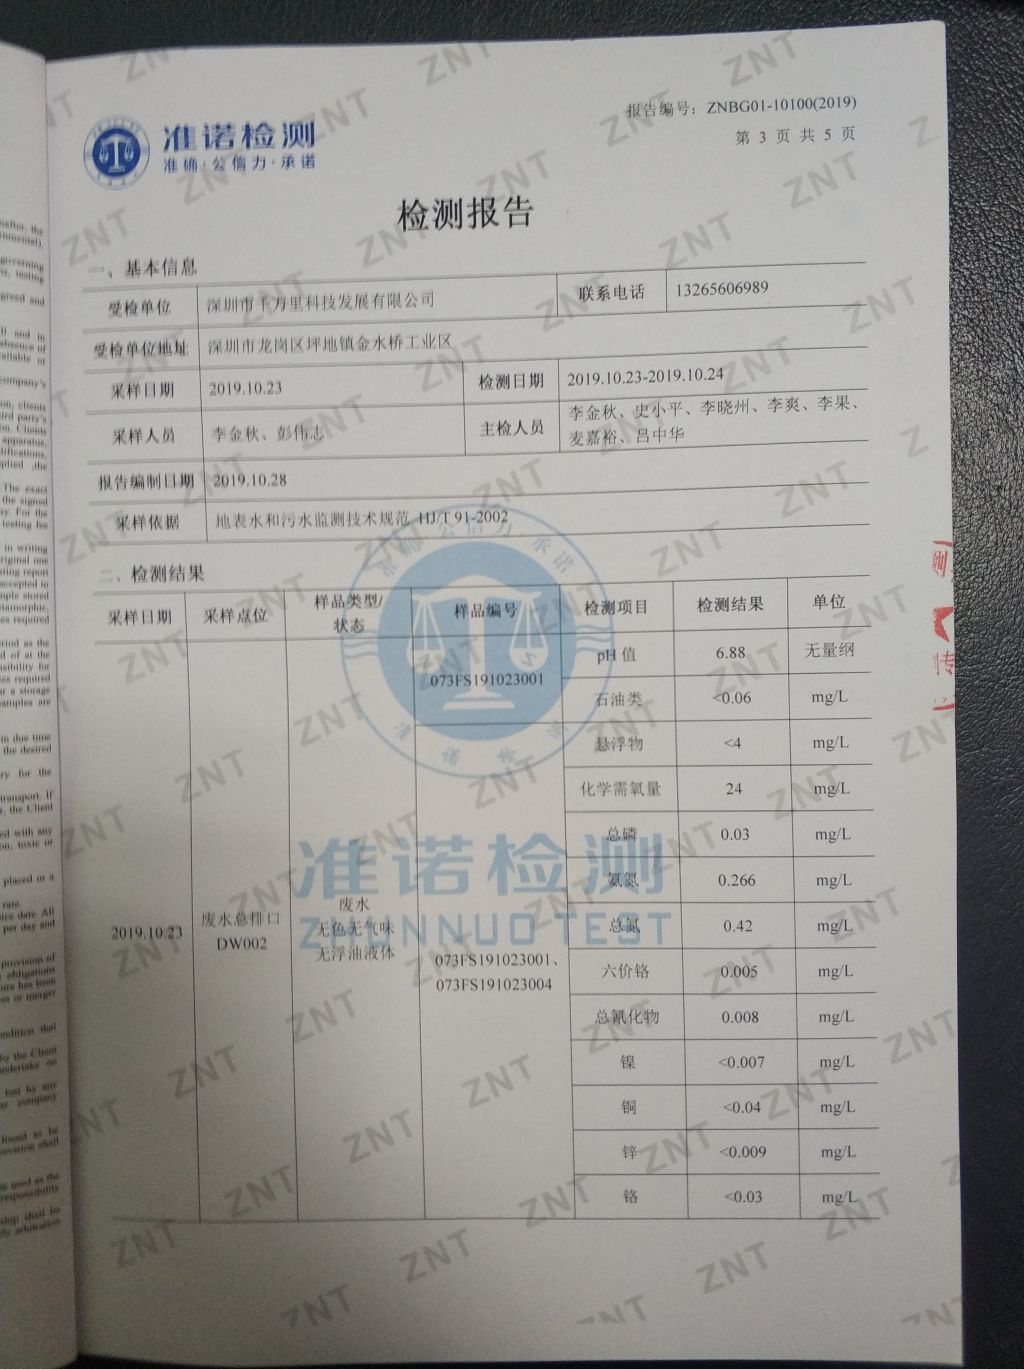 准诺检测
准确·公信力·承诺
报告编号：ZNBG01-10100(2019)
第 3 页 共 5 页
检测报告
一、基本信息
受检单位 深圳市千万里科技发展有限公司 联系电话 13265606989
受检单位地址 深圳市龙岗区坪地镇金水桥工业区
采样日期 2019.10.23 检测日期 2019.10.23-2019.10.24
采样人员 李金秋、彭伟志 主检人员 李金秋、史小平、李晓州、李爽、李果、
麦嘉裕、吕中华
报告编制日期 2019.10.28
采样依据 地表水和污水监测技术规范 HJ/T 91-2002
二、检测结果
采样日期 采样点位 样品类型/
状态 样品编号 检测项目 检测结果 单位
2019.10.23 废水总排口
DW002
废水
无色无气味
无浮油液体
073FS191023001
pH 值 6.88 无量纲
石油类 <0.06 mg/L
073FS191023001、
073FS191023004
悬浮物 <4 mg/L
化学需氧量 24 mg/L
总磷 0.03 mg/L
氨氮 0.266 mg/L
总氮 0.42 mg/L
六价铬 0.005 mg/L
总氰化物 0.008 mg/L
镍 <0.007 mg/L
铜 <0.04 mg/L
锌 <0.009 mg/L
铬 <0.03 mg/L
准诺检测
ZHUNNUO TEST
ZNT